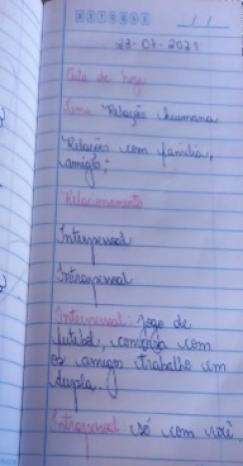 23-07-2021
Aula de hoje
Tema: Relações humana
Relações com família,
amigos;
Relacionamento
Interpessoal
Intrapessoal
Interpessoal: Jogo de
futebol, conversa com
os amigos trabalho em
dupla.
Intrapessoal só com você